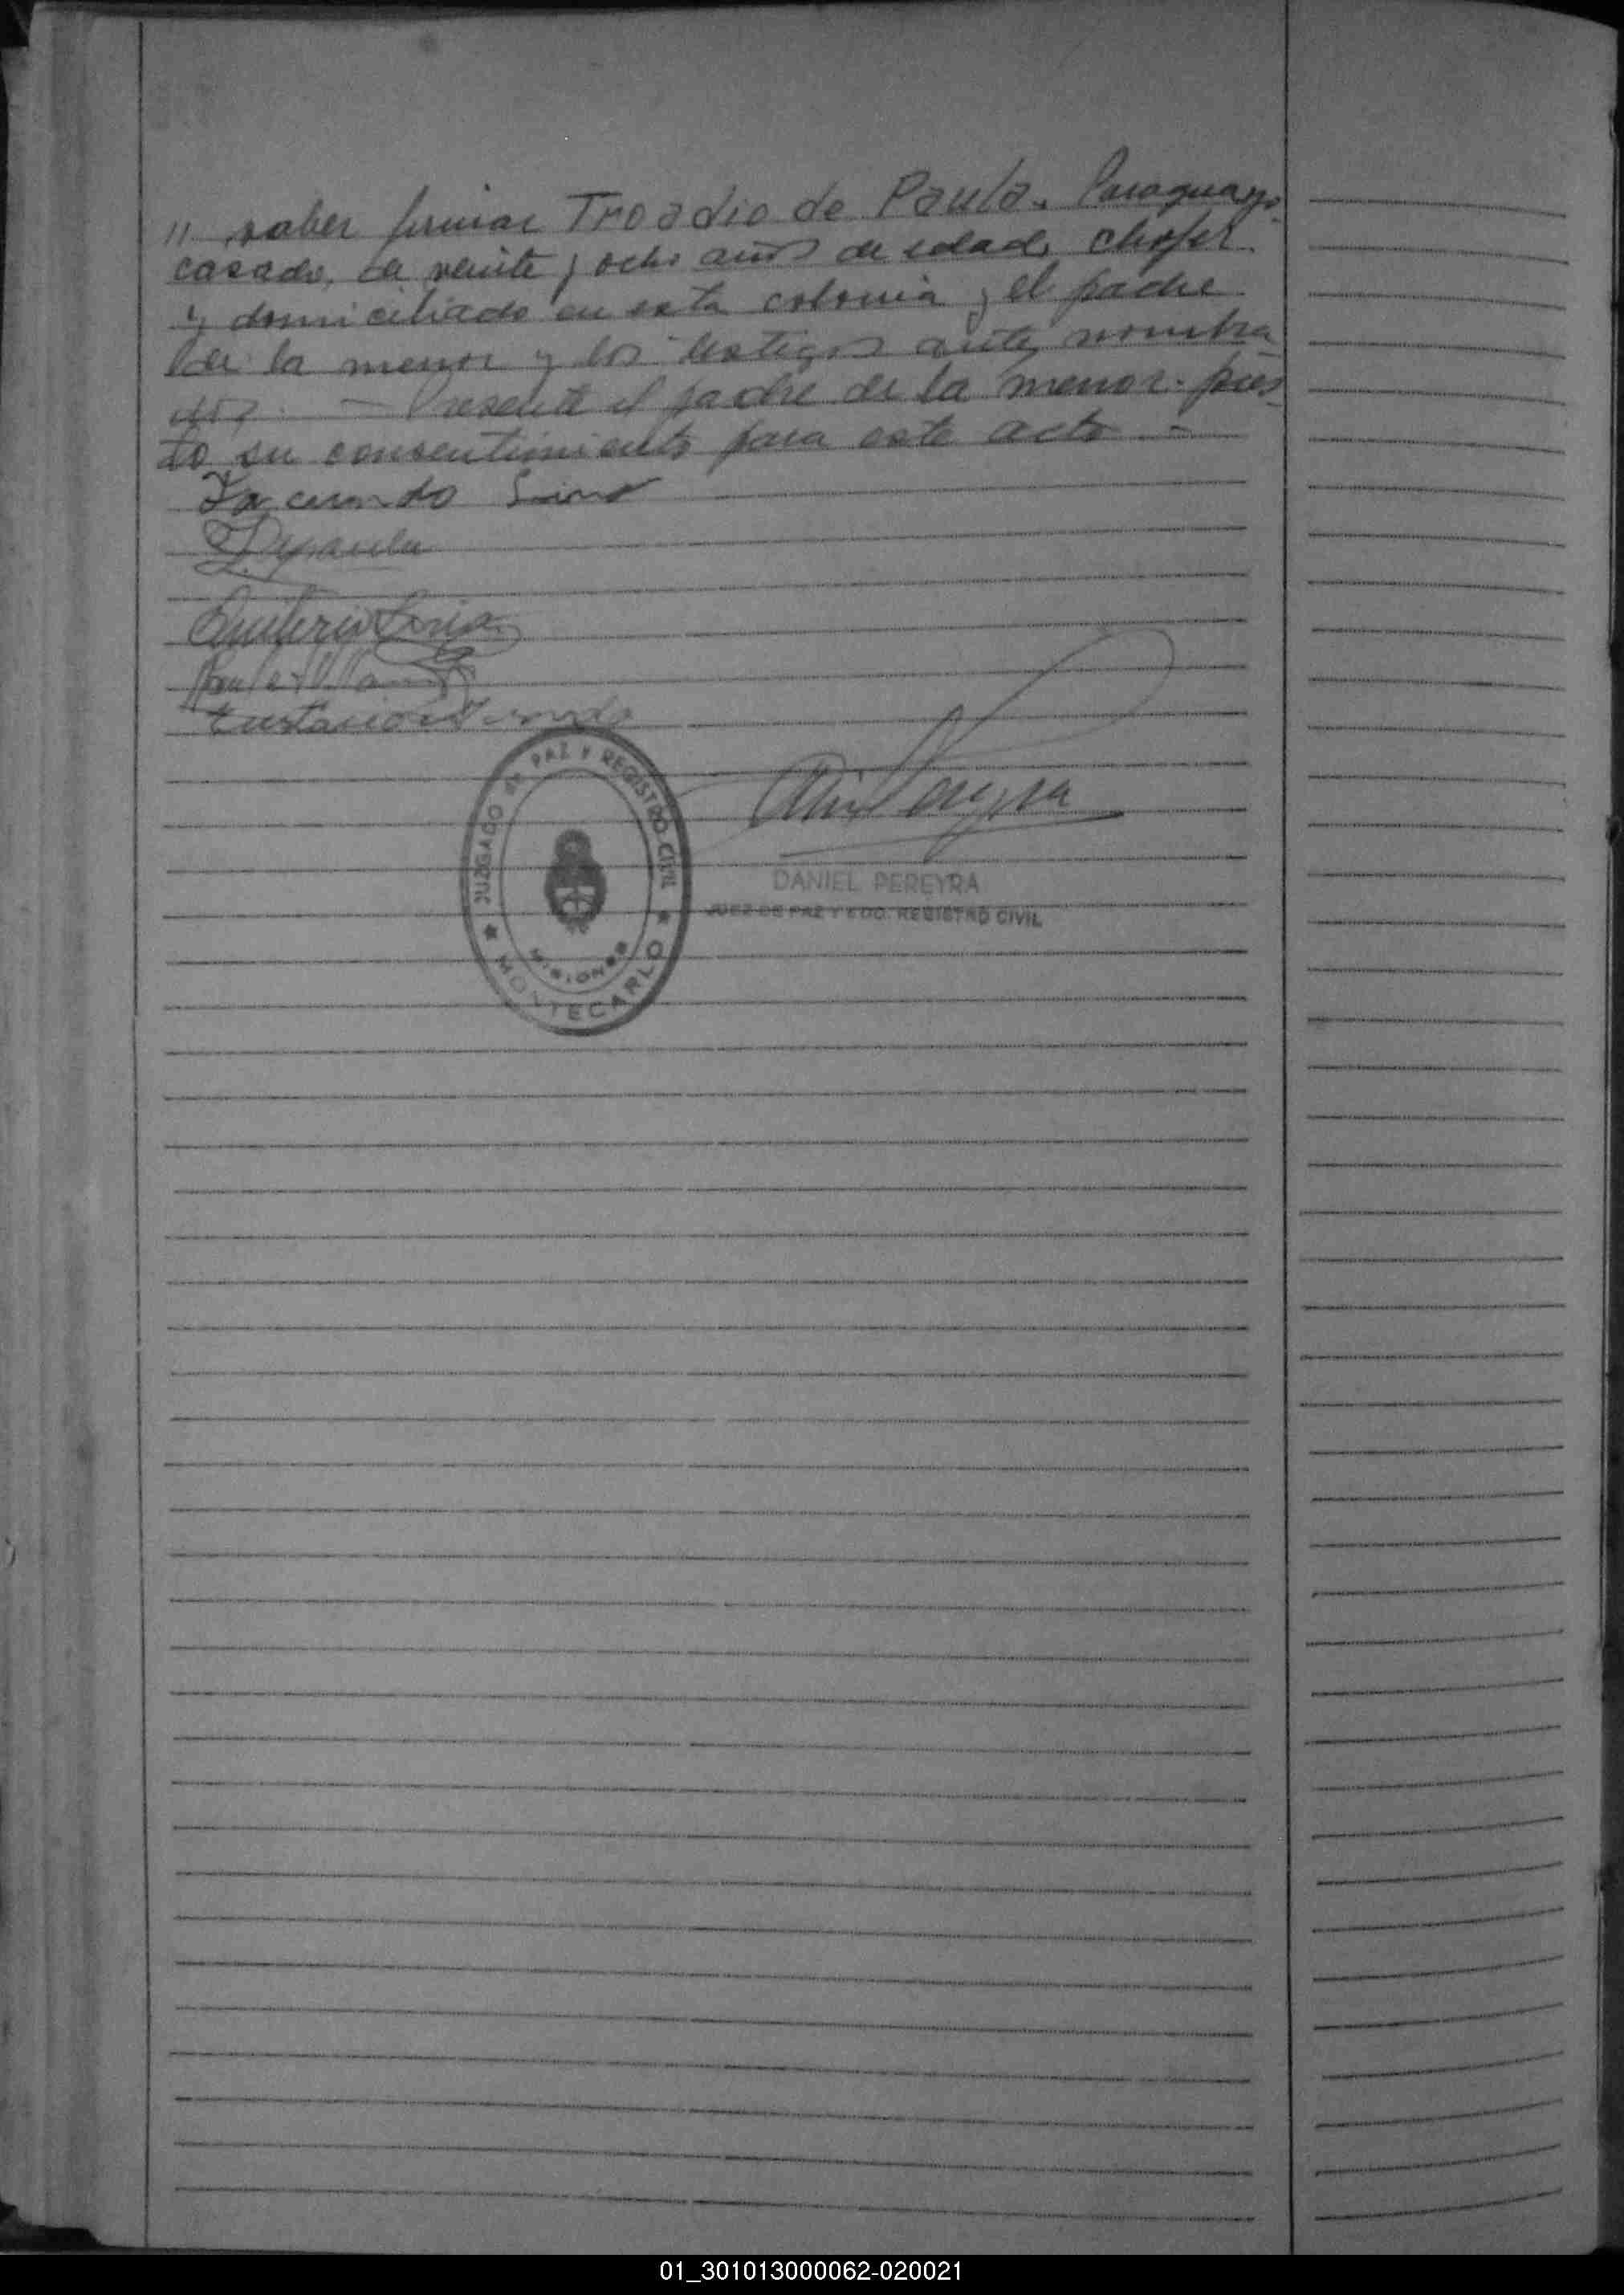 " saber firmar Troadio de Paula. Paraguayo
casado, de veinte y ocho años de edad, chofer
y domiciliado en esta colonia y el padre
de la menor y los testigos antes nombra
dos. — Presente el padre de la menor. pres-
tó su consentimiento para este acto —
Facundo
Depaula
Quiterio
Eustacio
JUZGADO DE PAZ Y REGISTRO CIVIL
MISIONES
MONTECARLO
DANIEL PEREYRA
JUEZ DE PAZ Y EDO. REGISTRO CIVIL
01_301013000062-020021